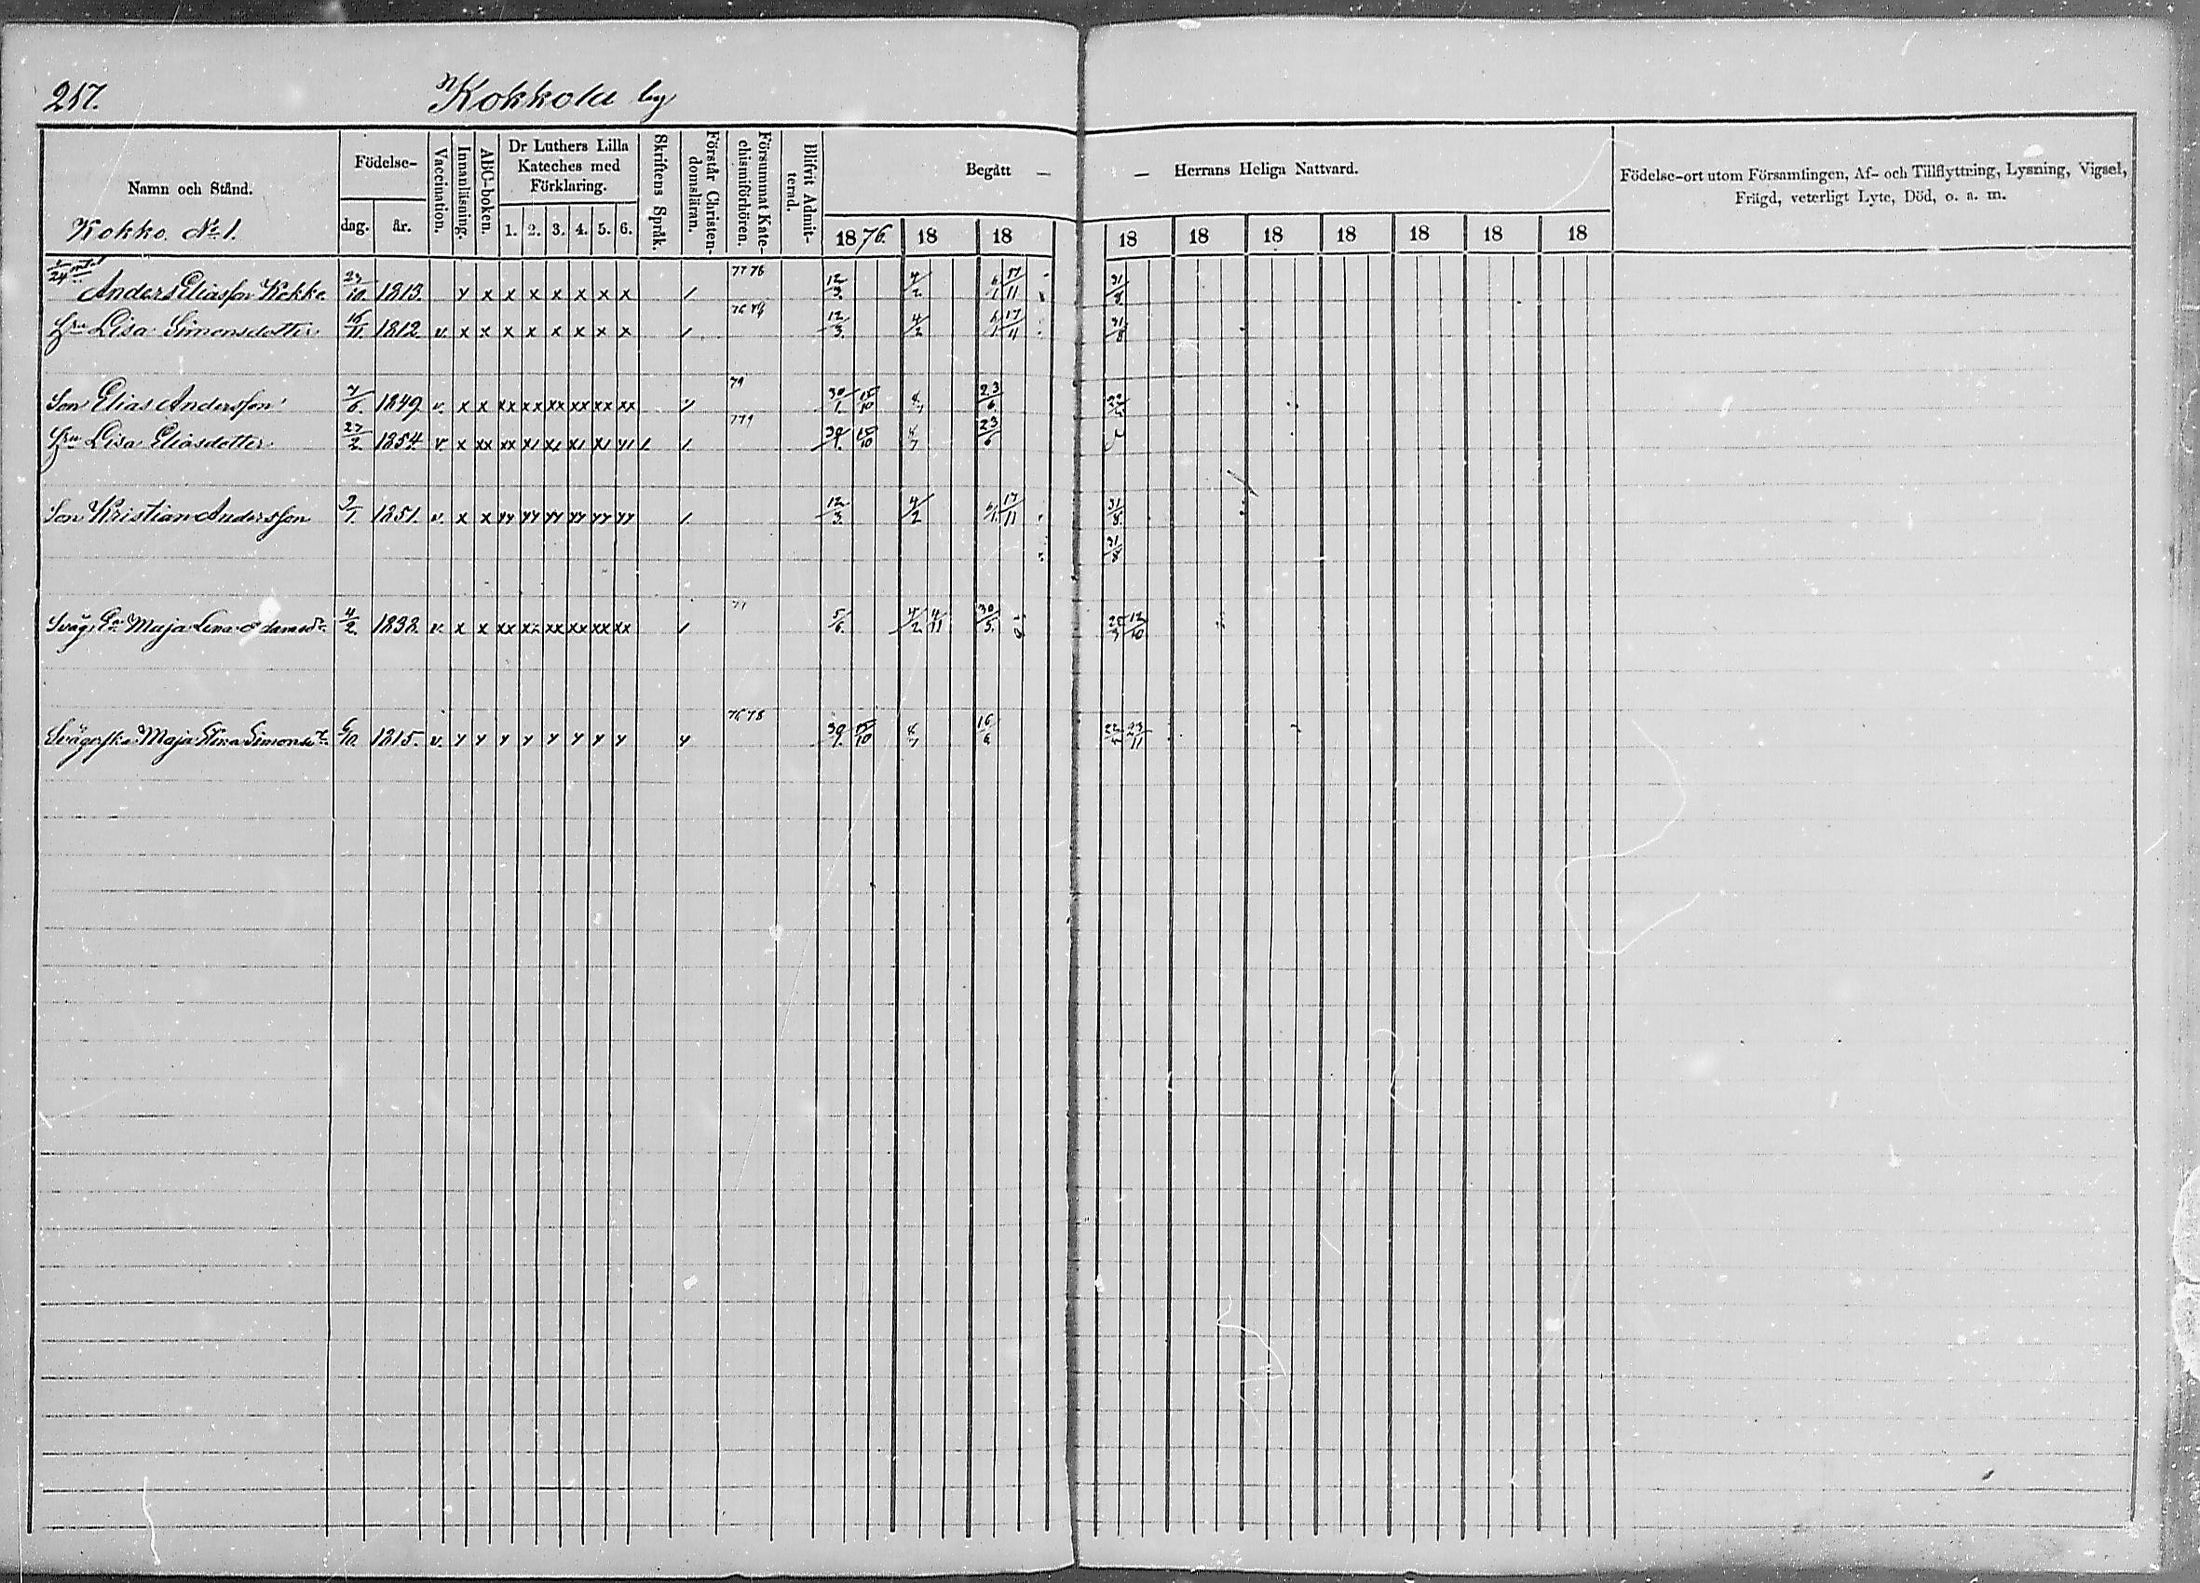 217. Kokkola by
Namn och Stånd. Födelse- dag. år. Vaccination. Innanläsning. ABC-boken. Dr Luthers Lilla Kateches med Förklaring. 1. 2. 3. 4. 5. 6. Skriftens Språk. Förstår Christendomsläran. Försummat Katechismiförhören. Blifvit Admitterad. Begått — — Herrans Heliga Nattvard. Födelse-ort utom Församlingen, Af- och Tillflyttning, Lysning, Vigsel, Frägd, veterligt Lyte, Död, o. a. m.
Kokko. No 1. 1876. 18 18 18 18 18 18 18 18 18
1/24 mtl
Anders Eliasson Kokko 23/10. 1813. y x x x x x x x 1 77 78 12/3. 4/2 6/1 17/11 31/8
Hru Lisa Simonsdotter 1812. v. x x x x x x x x 1 12/3. 4/2 6/1 17/11 31/8
Son Elias Andersson 7/6. 1849. v. x x xx xx xx xx xx xx 79 30/1. 15/10 23/6
Hru Lisa Eliasdotter 27/2. 1854. v. x xx xx x1 x1 x1 x1 y1 1. 1. 30/1. 15/10 23/6
Son Kristian Andersson 1851. v. x x yy yy yy yy yy yy 1. 12/3. 4/2 6/1. 17/11 31/8
31/8
Maja Lena Adamsdr 4/2. 1838. v. x x xx xx xx xx xx xx 1 5/6. 4/2 4/11 30/3. 12/10
Svägerska Maja Stina Simonsdr 6/10. 1815. v. y y y y y y y y y 76 78 30/1. 15/10 16/6 23/11